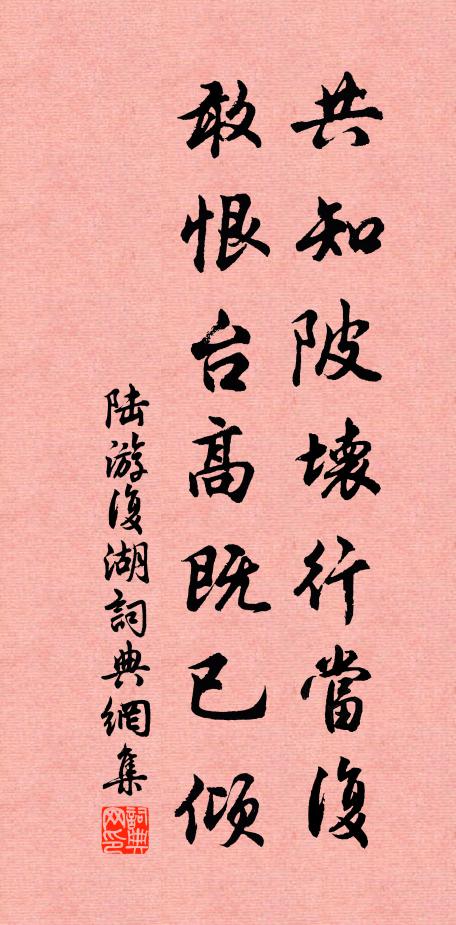 共知陂壞行當復
敢恨台高既已傾
陆游復湖詞典網集
詞典网印